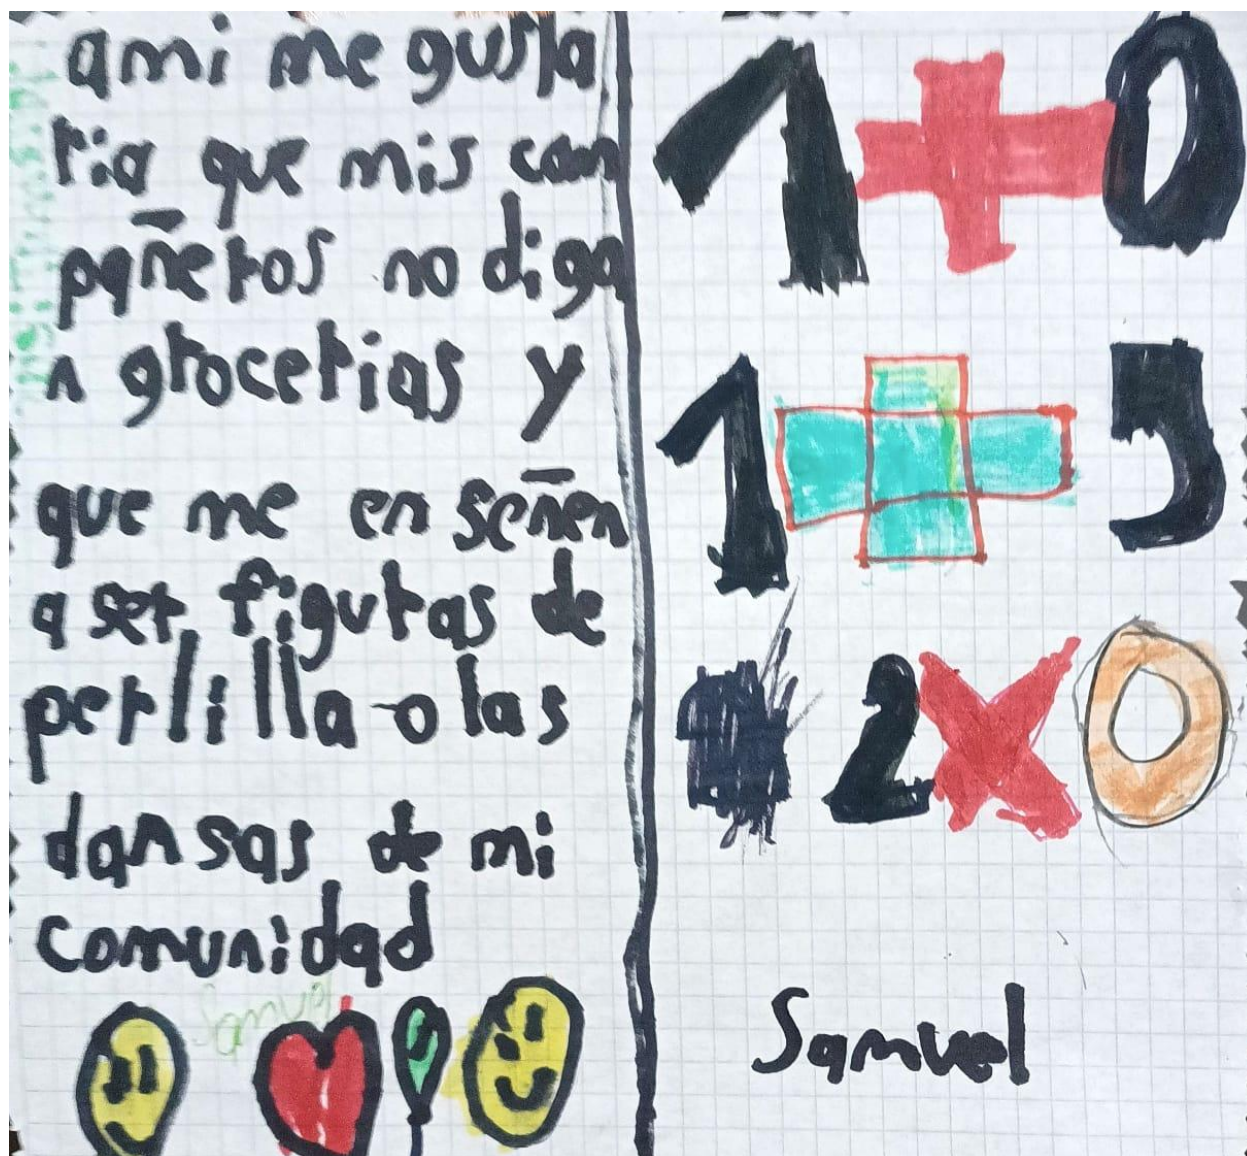 ami me gusta
ria que mis can
pañeros no diga
n grocerias y
que me en señen
a ser figuras de
perlilla o las
dansas de mi
comunidad
Samuel
1+0
1+5
2x0
Samuel